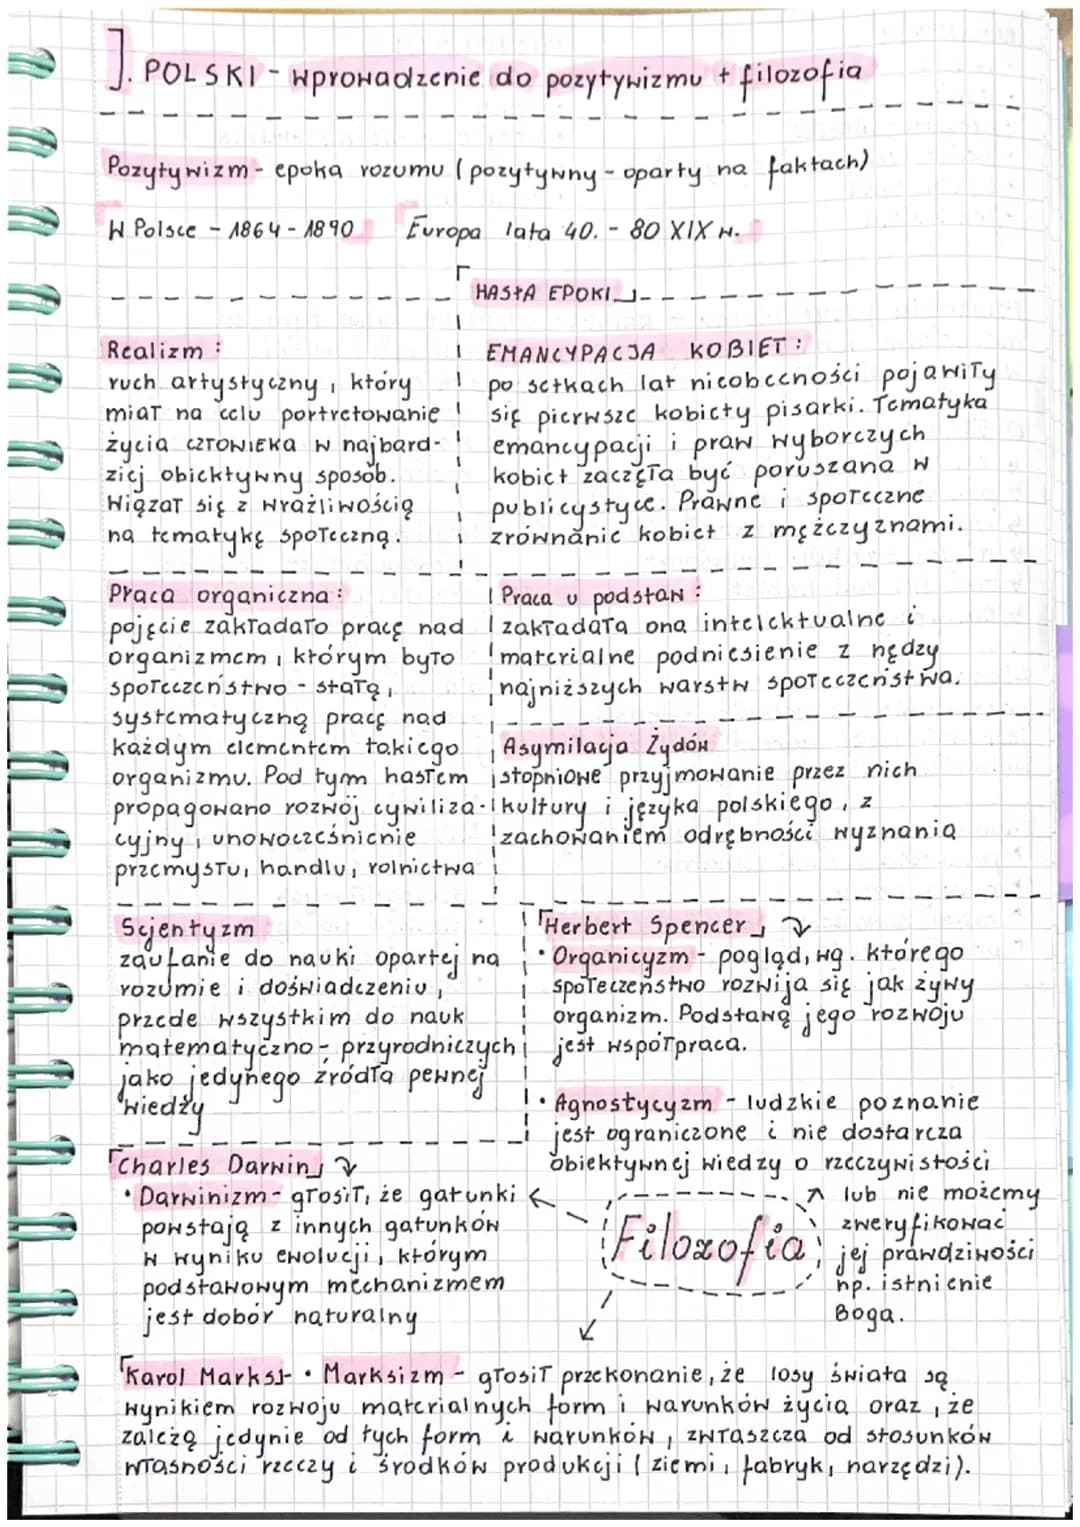 J. POLSKI - wprowadzenie do pozytywizmu + filozofia
Pozytywizm - epoka rozumu (pozytywny - oparty na faktach)
W Polsce - 1864 - 1890 Europa lata 40. - 80 XIX w.
HASŁA EPOKI
Realizm :
ruch artystyczny, który
miał na celu portretowanie
życia człowieka w najbard-
ziej obiektywny sposób.
Wiązał się z wrażliwością
na tematykę społeczną.
EMANCYPACJA KOBIET :
po setkach lat nieobecności pojawiły
się pierwsze kobiety pisarki. Tematyka
emancypacji i praw wyborczych
kobiet zaczęła być poruszana w
publicystyce. Prawne i społeczne
zrównanie kobiet z mężczyznami.
Praca organiczna :
pojęcie zakładało pracę nad
organizmem, którym było
społeczeństwo - stałą,
systematyczną pracę nad
każdym elementem takiego
organizmu. Pod tym hasłem
propagowano rozwój cywiliza-
cyjny, unowocześnienie
przemysłu, handlu, rolnictwa
Praca u podstaw :
zakładała ona intelektualne i
materialne podniesienie z nędzy
najniższych warstw społeczeństwa.
Asymilacja Żydów
stopniowe przyjmowanie przez nich
kultury i języka polskiego, z
zachowaniem odrębności wyznania
Scjentyzm
zaufanie do nauki opartej na
rozumie i doświadczeniu,
przede wszystkim do nauk
matematyczno - przyrodniczych
jako jedynego źródła pewnej
wiedzy
Herbert Spencer
• Organicyzm - pogląd, wg. którego
społeczeństwo rozwija się jak żywy
organizm. Podstawą jego rozwoju
jest współpraca.
• Agnostycyzm - ludzkie poznanie
jest ograniczone i nie dostarcza
obiektywnej wiedzy o rzeczywistości
lub nie możemy
zweryfikować
jej prawdziwości
np. istnienie
Boga.
Charles Darwin
• Darwinizm - głosił, że gatunki
powstają z innych gatunków
w wyniku ewolucji, którym
podstawowym mechanizmem
jest dobór naturalny
Filozofia
Karol Marks - • Marksizm - głosił przekonanie, że losy świata są
wynikiem rozwoju materialnych form i warunków życia oraz, że
zależą jedynie od tych form i warunków, zwłaszcza od stosunków
własności rzeczy i środków produkcji (ziemi, fabryk, narzędzi).